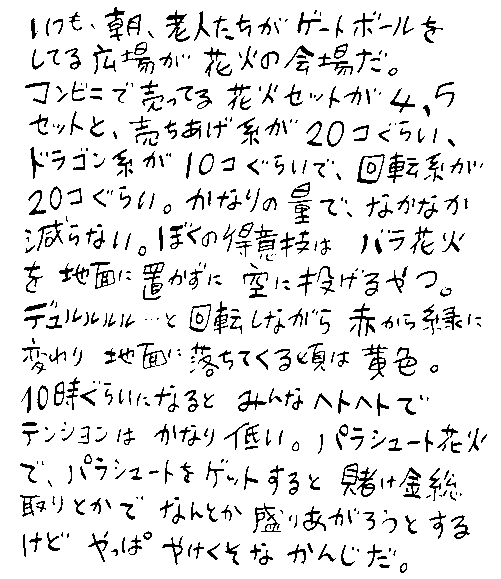 いつも、朝、老人たちが ゲートボールを
してる広場が 花火の会場だ。
コンビニで売ってる花火セットが4,5
セットと、売ちあげ系が20コぐらい、
ドラゴン系が10コぐらいで、回転系が
20コぐらい。かなりの量で、なかなか
減らない。ぼくの得意技は バラ花火
を 地面に置かずに 空に投げるやつ。
デュルルルル…と回転しながら 赤から緑に
変わり 地面に落ちてくる頃は黄色。
10時ぐらいになると みんなヘトヘトで
テンションは かなり低い。パラシュート花火
で、パラシュートをゲットすると 賭け金総
取りとかで なんとか盛りあがろうとする
けど やっぱ やけくそな かんじだ。